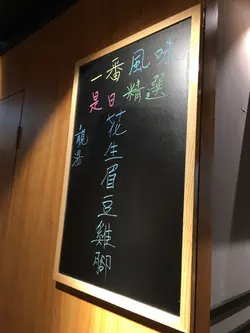 一番風味
是日精選
靚湯
花生眉豆雞腳